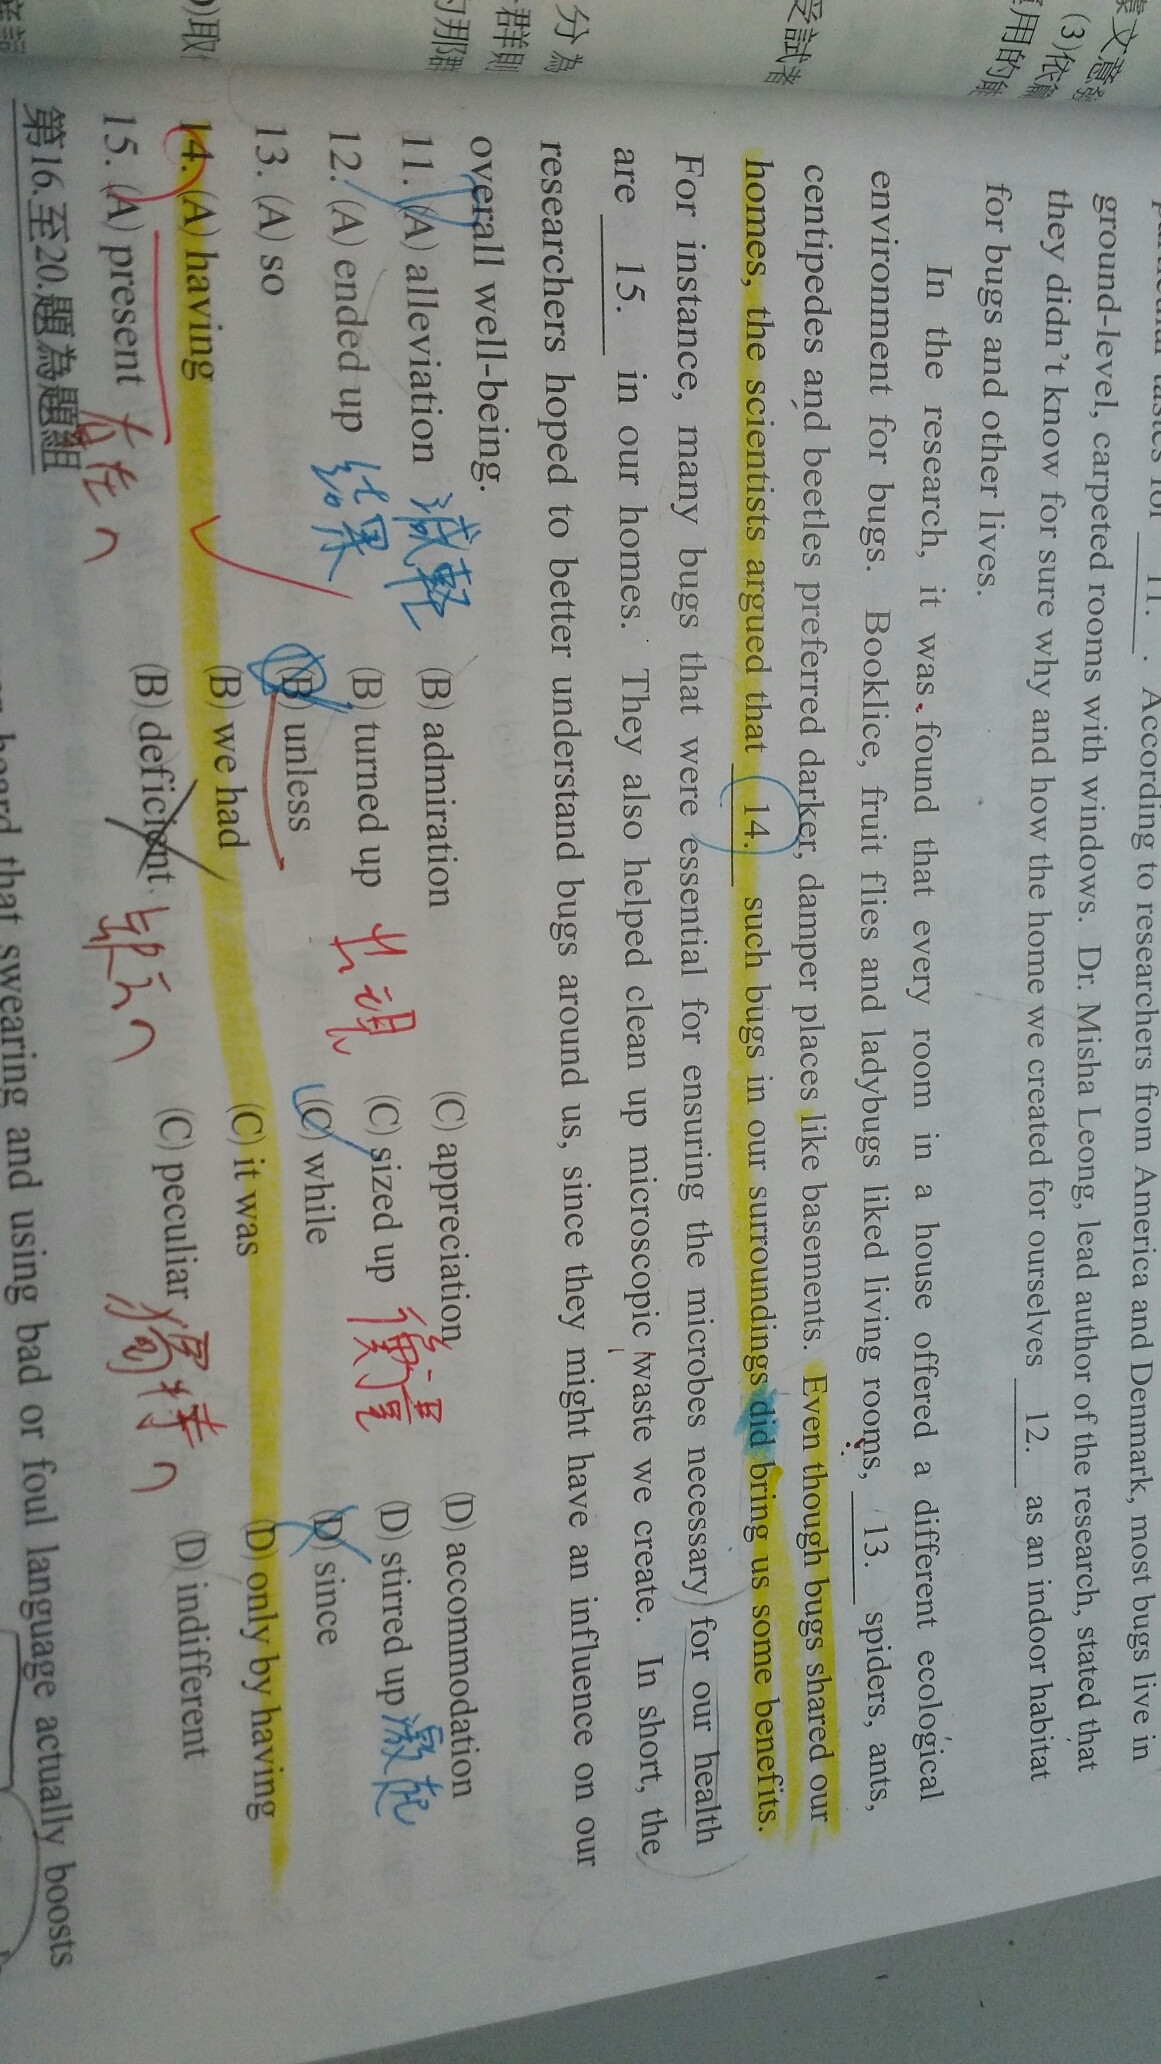 受試者
分為
群則
的那群
取
(3)依
用的
11. . According to researchers from America and Denmark, most bugs live in
ground-level, carpeted rooms with windows. Dr. Misha Leong, lead author of the research, stated that
they didn't know for sure why and how the home we created for ourselves 12. as an indoor habitat
for bugs and other lives.
In the research, it was found that every room in a house offered a different ecological
environment for bugs. Booklice, fruit flies and ladybugs liked living rooms, 13. spiders, ants,
centipedes and beetles preferred darker, damper places like basements. Even though bugs shared our
homes, the scientists argued that 14. such bugs in our surroundings did bring us some benefits.
For instance, many bugs that were essential for ensuring the microbes necessary for our health
are 15. in our homes. They also helped clean up microscopic waste we create. In short, the
researchers hoped to better understand bugs around us, since they might have an influence on our
overall well-being.
11. (A) alleviation 減輕 (B) admiration (C) appreciation (D) accommodation
12. (A) ended up 結果 (B) turned up 出現 (C) sized up 衡量 (D) stirred up 激起
13. (A) so (B) unless (C) while (D) since
14. (A) having (B) we had (C) it was (D) only by having
15. (A) present 存在的 (B) deficient 缺乏的 (C) peculiar 獨特的 (D) indifferent
第16.至20.題為題組
heard that swearing and using bad or foul language actually boosts